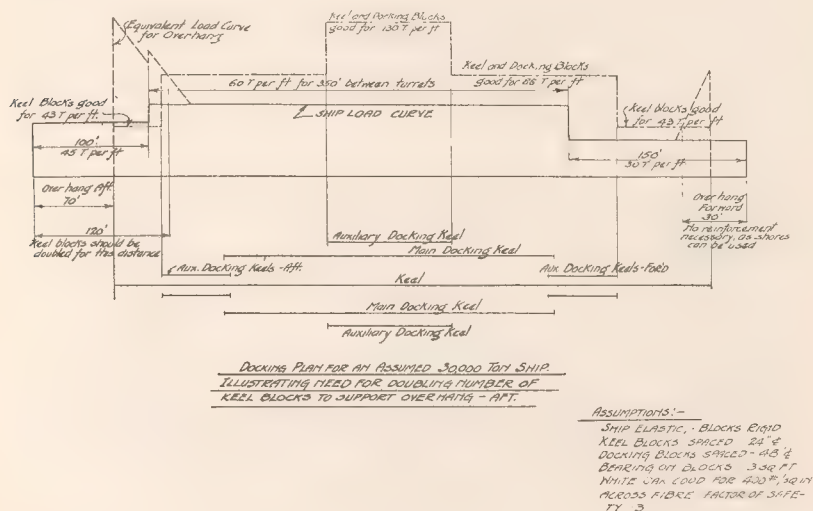 Equivalent Load Curve
for Overhang
Keel and Docking Blocks
good for 130 T per ft
Keel and Docking Blocks
good for 88 T per ft
60 T per ft for 350' between turrets
Keel Blocks good
for 43 T per ft.
SHIP LOAD CURVE
Keel blocks good
for 43 T per ft
100'
45 T per ft
150'
30 T per ft
Overhang Aft.
70'
Overhang
Forward
30'
120'
No reinforcement
necessary, as shores
can be used
Keel blocks should be
doubled for this distance
Auxiliary Docking Keel
Main Docking Keel
Aux. Docking Keels-Aft.
Aux Docking Keels-For'd
Keel
Main Docking Keel
Auxiliary Docking Keel
DOCKING PLAN FOR AN ASSUMED 30,000 TON SHIP.
ILLUSTRATING NEED FOR DOUBLING NUMBER OF
KEEL BLOCKS TO SUPPORT OVERHANG - AFT.
ASSUMPTIONS:-
SHIP ELASTIC, - BLOCKS RIGID
KEEL BLOCKS SPACED 24" ℄
DOCKING BLOCKS SPACED - 48" ℄
BEARING ON BLOCKS 3 SQ FT
WHITE OAK GOOD FOR 400#/SQ IN
ACROSS FIBRE FACTOR OF SAFE-
TY 3